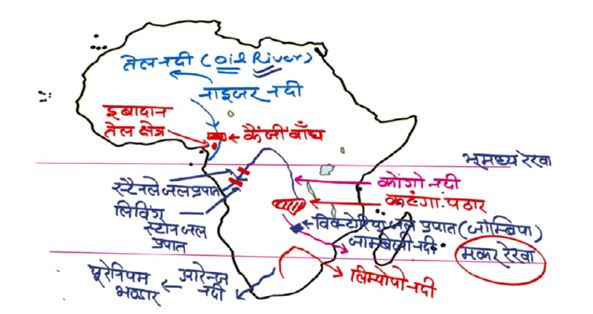 तेल नदी (Oil River)
नाइजर नदी
इबादान
तेल क्षेत्र
कैंजी बाँध
भूमध्य रेखा
स्टैनले जल प्रपात
कांगो नदी
कटंगा पठार
लिविंग
स्टोन जल
प्रपात
विक्टोरिया जल प्रपात (जाम्बिया)
जाम्बेजी नदी
मकर रेखा
यूरेनियम
भण्डार
आरेन्ज
नदी
लिम्पोपो नदी